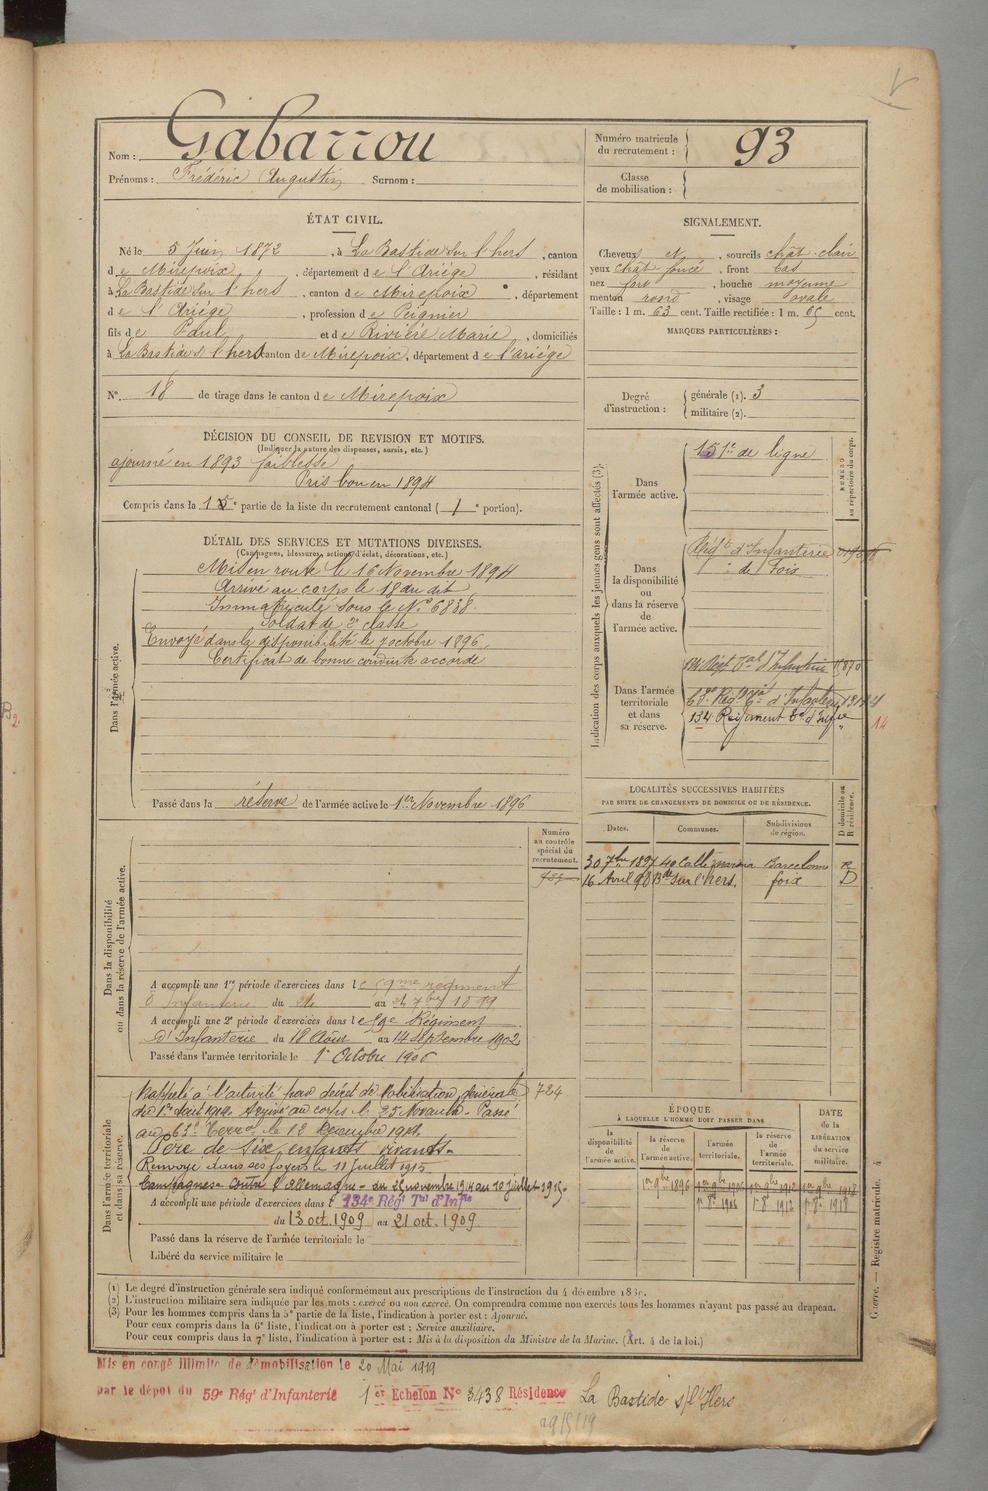 Nom : Gabarrou
Prénoms : Frédéric Augustin Surnom :
Numéro matricule
du recrutement : 93
Classe
de mobilisation :
ÉTAT CIVIL.
Né le 5 Juin 1872, à La Bastide sur l'hers, canton
de Mirepoix, département de l'Ariège, résidant
à La Bastide sur l'hers, canton de Mirepoix, département
de l'Ariège, profession de Peignier
fils de Paul et de Rivière Marie, domiciliés
à La Bastide s l'hers canton de Mirepoix, département de l'ariège
N° 18 de tirage dans le canton de Mirepoix
SIGNALEMENT.
Cheveux et, sourcils chât-clair
yeux chât-foncé, front bas
nez fort, bouche moyenne
menton rond, visage ovale
Taille : 1 m. 63 cent. Taille rectifiée : 1 m. 65 cent.
MARQUES PARTICULIÈRES :
Degré
d'instruction :
générale (1). 3
militaire (2).
DÉCISION DU CONSEIL DE REVISION ET MOTIFS.
(Indiquer la nature des dispenses, sursis, etc.)
ajourné en 1893 faiblesse
Pris bon en 1894
Compris dans la 1e partie de la liste du recrutement cantonal ( 1e portion).
DÉTAIL DES SERVICES ET MUTATIONS DIVERSES.
(Campagnes, blessures, actions d'éclat, décorations, etc.)
Dans l'armée active.
Mis en route le 16 Novembre 1894
Arrivé au corps le 18 du dit
Immatriculé sous le N° 6838.
Soldat de 2e classe
Envoyé dans la disponibilité le 7 octobre 1896
Certificat de bonne conduite accordé
Passé dans la réserve de l'armée active le 1er Novembre 1896
Indication des corps auxquels les jeunes gens sont affectés (3).
NUMÉRO
au répertoire du corps.
Dans
l'armée active.
151e de ligne
Dans
la disponibilité
ou
dans la réserve
de
l'armée active.
Régt d'Infanterie
de Foix
Dans l'armée
territoriale
et dans
sa réserve.
134 Régt Tal d'Infanterie
63e Régt Tal d'Infanterie
134 Régiment Tal d'Infie
14
LOCALITÉS SUCCESSIVES HABITÉES
PAR SUITE DE CHANGEMENTS DE DOMICILE OU DE RÉSIDENCE.
Dates. Communes. Subdivisions
de région.
D domicile ou
R résidence.
30 7bre 1897 Barcelone R
16 Avril 98 Bde sur l'hers. foix D
Numéro
au contrôle
spécial du
recrutement.
Dans la disponibilité
ou dans la réserve de l'armée active.
A accompli une 1re période d'exercices dans le 9me régiment
d'Infanterie du au 7bre 1899
A accompli une 2e période d'exercices dans le 59e Régiment
d'Infanterie du 18 Août au 14 Septembre 1902
Passé dans l'armée territoriale le 1er Octobre 1906
Dans l'armée territoriale
et dans sa réserve.
Rappelé à l'activité par décret de Mobilisation générale 724
du 1er Août 1914 Arrivé au corps le 25 Novembre - Passé
au 63e Terral le 12 Décembre 1914
Père de six enfants vivants.
Renvoyé dans ses foyers le 11 Juillet 1915
Campagnes contre l'Allemagne - du 25 novembre 1914 au 10 juillet 1915.
A accompli une période d'exercices dans l 134e Régt Tal d'Infie
du 13 oct. 1909 au 21 oct. 1909
Passé dans la réserve de l'armée territoriale le
Libéré du service militaire le
ÉPOQUE
À LAQUELLE L'HOMME DOIT PASSER DANS
la
disponibilité
de
l'armée active.
la réserve
de
l'armée active.
l'armée
territoriale.
la réserve
de
l'armée
territoriale.
DATE
de la
LIBÉRATION
du service
militaire.
1er 9bre 1896 1er 9bre 1906 1er 9bre 1912 1er 9bre 1918
1er 8b 1906 1er 8b 1912 1er 8b 1918
(1) Le degré d'instruction générale sera indiqué conformément aux prescriptions de l'instruction du 4 décembre 1889.
(2) L'instruction militaire sera indiquée par les mots : exercé ou non exercé. On comprendra comme non exercés tous les hommes n'ayant pas passé au drapeau.
(3) Pour les hommes compris dans la 5e partie de la liste, l'indication à porter est : Ajourné.
Pour ceux compris dans la 6e liste, l'indication à porter est : Service auxiliaire.
Pour ceux compris dans la 7e liste, l'indication à porter est : Mis à la disposition du Ministre de la Marine. (Art. 4 de la loi.)
Guerre. — Registre matricule. 4
Mis en congé illimité de démobilisation le 20 Mai 1919
par le dépôt du 59e Régt d'Infanterie 1er Echelon N° 3438 Résidence La Bastide s/l'Hers